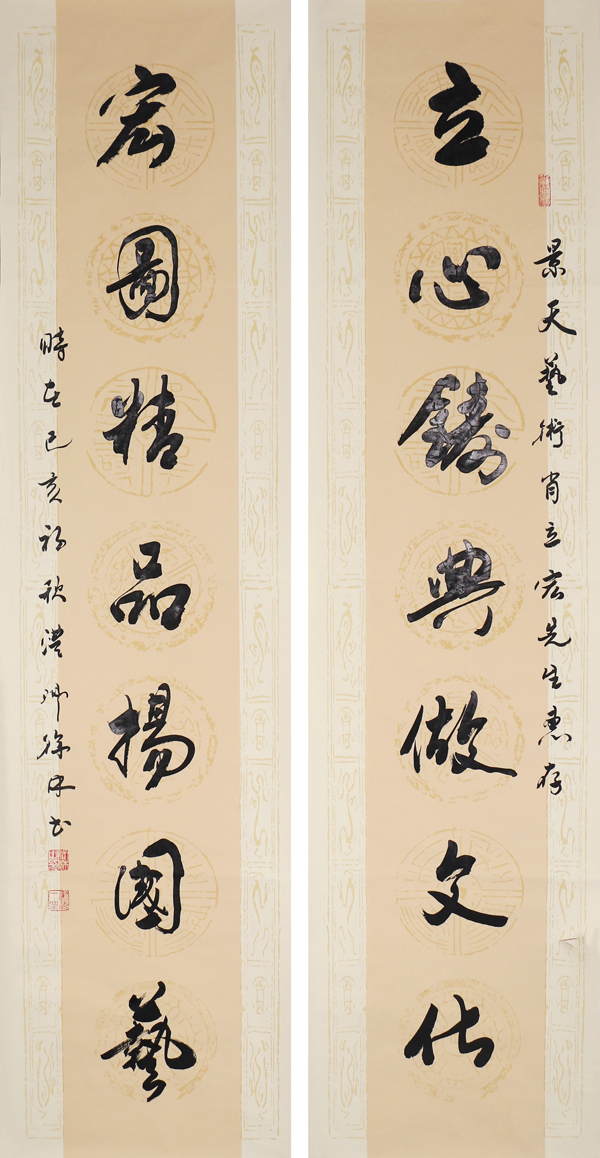 景天藝術肖立宏先生惠存
立心鑄典做文化
宏圖精品揚國藝
時在己亥初秋澧州徐書